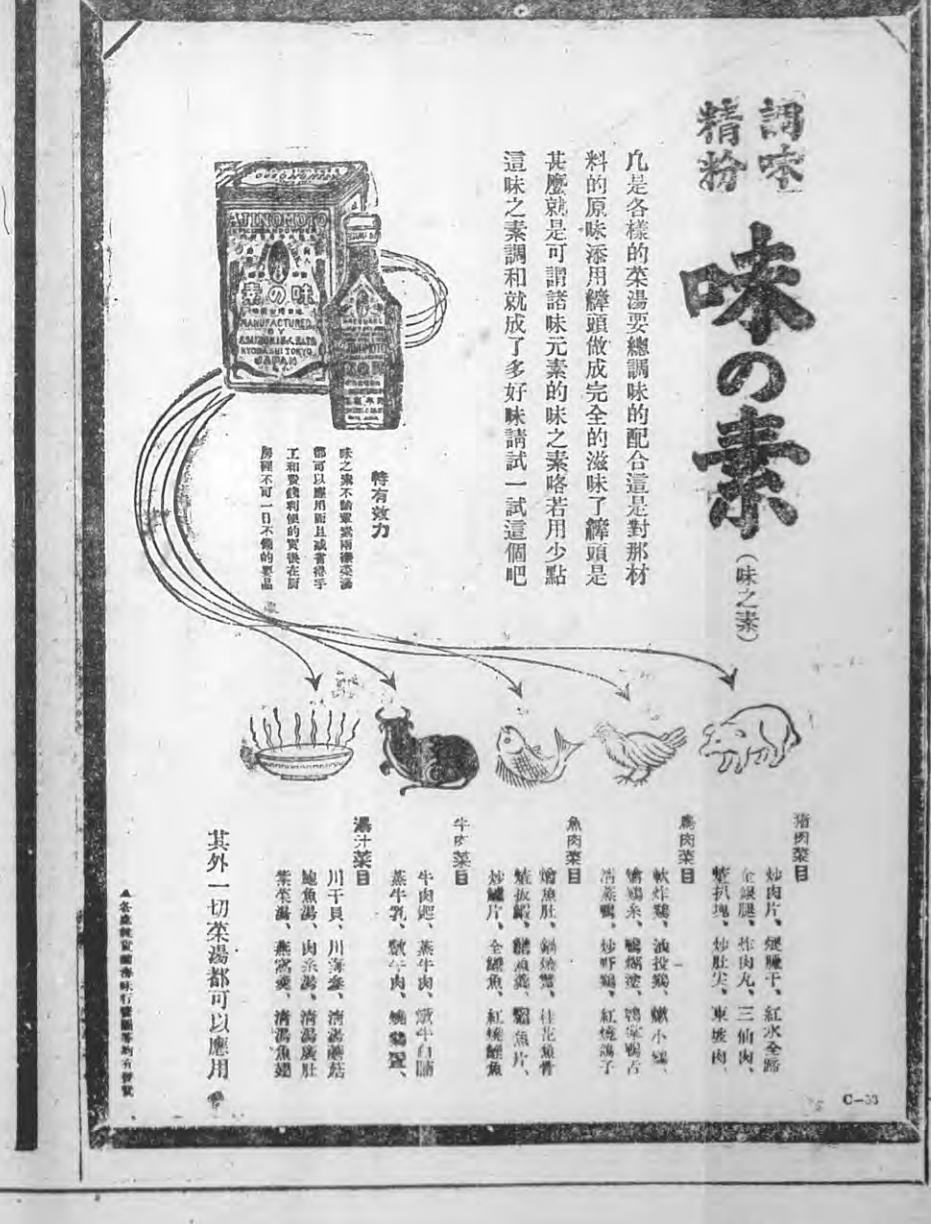 調味
精粉
味の素
(味之素)
凢是各樣的菜湯要總調味的配合這是對那材
料的原味添用縴頭做成完全的滋味了縴頭是
甚麼就是可謂諸味元素的味之素咯若用少點
這味之素調和就成了多好味請試一試這個吧
AJINOMOTO
味の素
MANUFACTURED
BY
KYOBASHI TOKYO
JAPAN
特有效力
味之素不論葷素兩樣菜湯
都可以應用而且減省得手
工和費錢利便的實後在厨
房裡不可一日不備的要品
猪肉菜目
炒肉片、㷟肝、紅水全蹄
金銀腿、炸肉丸、三仙肉、
炒肚尖、東坡肉、
鷄肉菜目
軟炸鷄、油投鷄、嫩小鷄、
燴鷄糸、
清蒸鴨、炒野鷄、紅燒鴿子
魚肉菜目
燴魚肚、鍋燒蟹、桂花魚骨
魚片、
片、全鯉魚、紅燒鯉魚
牛肉菜目
牛肉、蒸牛肉、燉牛白脯
蒸牛乳、牛肉、
湯汁菜目
川干貝、川海參、清湯蘑菇
鮑魚湯、肉糸湯、清湯廣肚
紫菜湯、燕窩羹、清湯魚翅
其外一切菜湯都可以應用
各處雜貨舖海味行
均有發賣
C—33